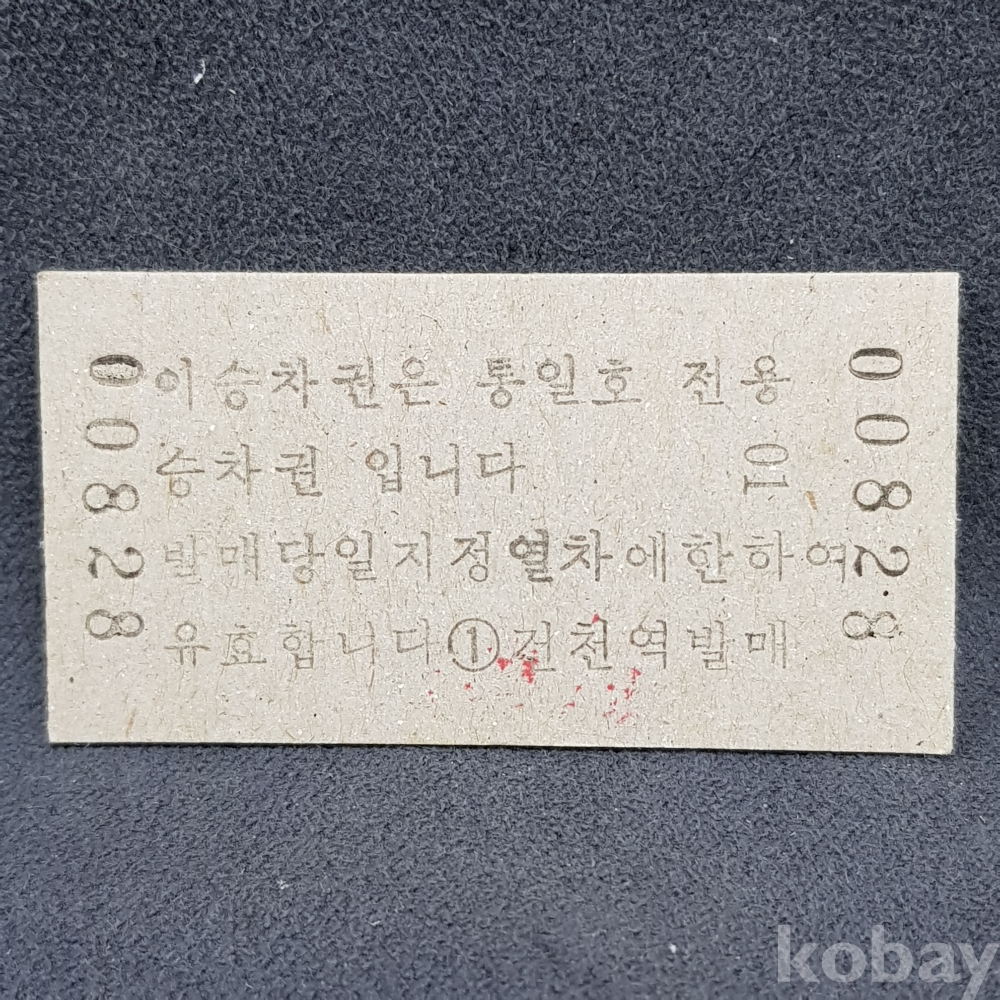 00828
이승차권은 통일호 전용
승차권 입니다 01
발매당일지정열차에한하여
유효합니다①건천역발매
00828
kobay